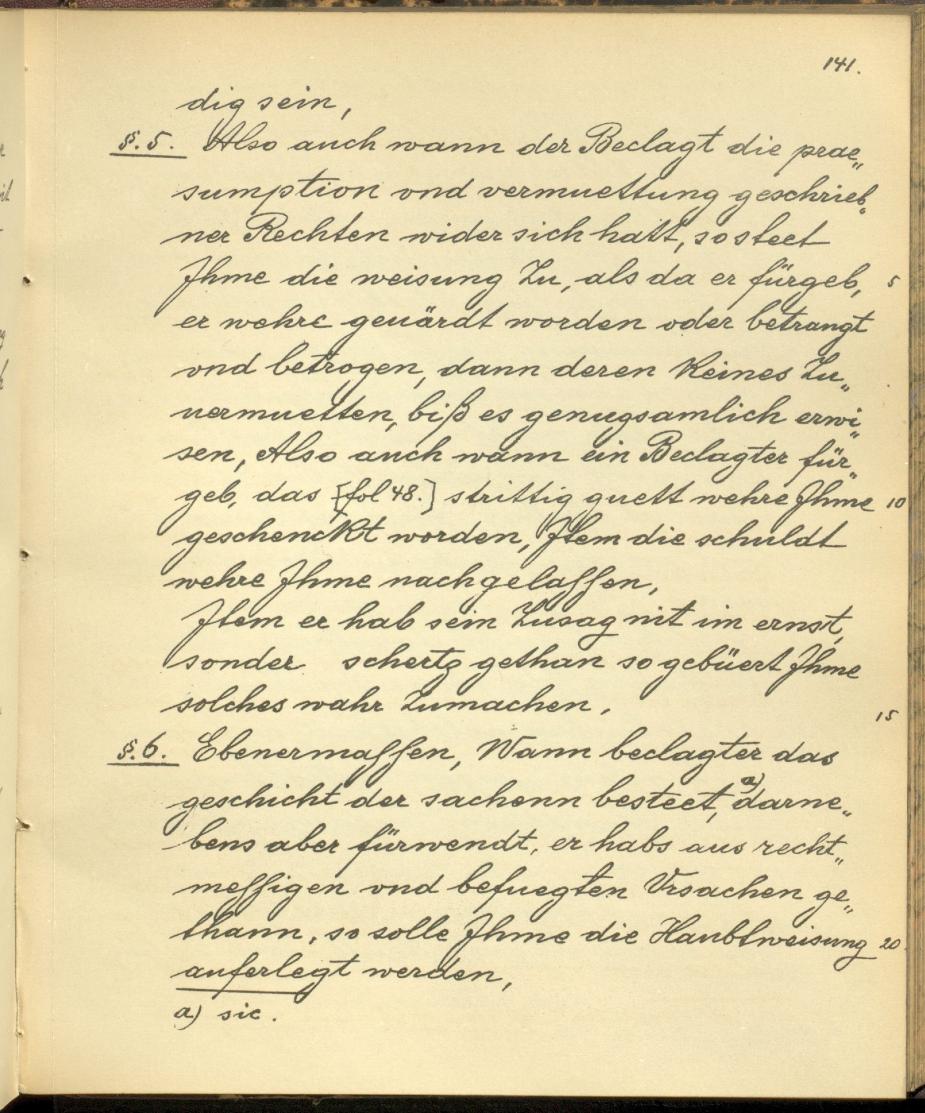 141.
dig sein,
§. 5. Also auch wann der Beclagt die prae„
sumption vnd vermuettung geschrieb„
ner Rechten wider sich hatt, so steet
Jhme die weisung Zu, als da er fürgeb, 5
er wehre geuärdt worden oder betrangt
vnd betrogen, dann deren Keines Zu„
uermuetten, biß es genugsamlich erwi„
sen, Also auch wann ein Beclagter für„
geb, das [fol 48.] strittig guett wehre Jhme 10
geschenckt worden, Jtem die schuldt
wehre Jhme nachgelassen,
Jtem er hab sein Zusag nit im ernst,
sonder schertz gethan so gebüert Jhme
solches wahr Zumachen, 15
§. 6. Ebenermassen, Wann beclagter das
geschicht der sachenn besteet, a) darne„
bens aber fürwendt, er habs aus recht„
messigen vnd befuegten Vrsachen ge„
thann, so solle Jhme die Haubtweisung 20
auferlegt werden,
a) sic.